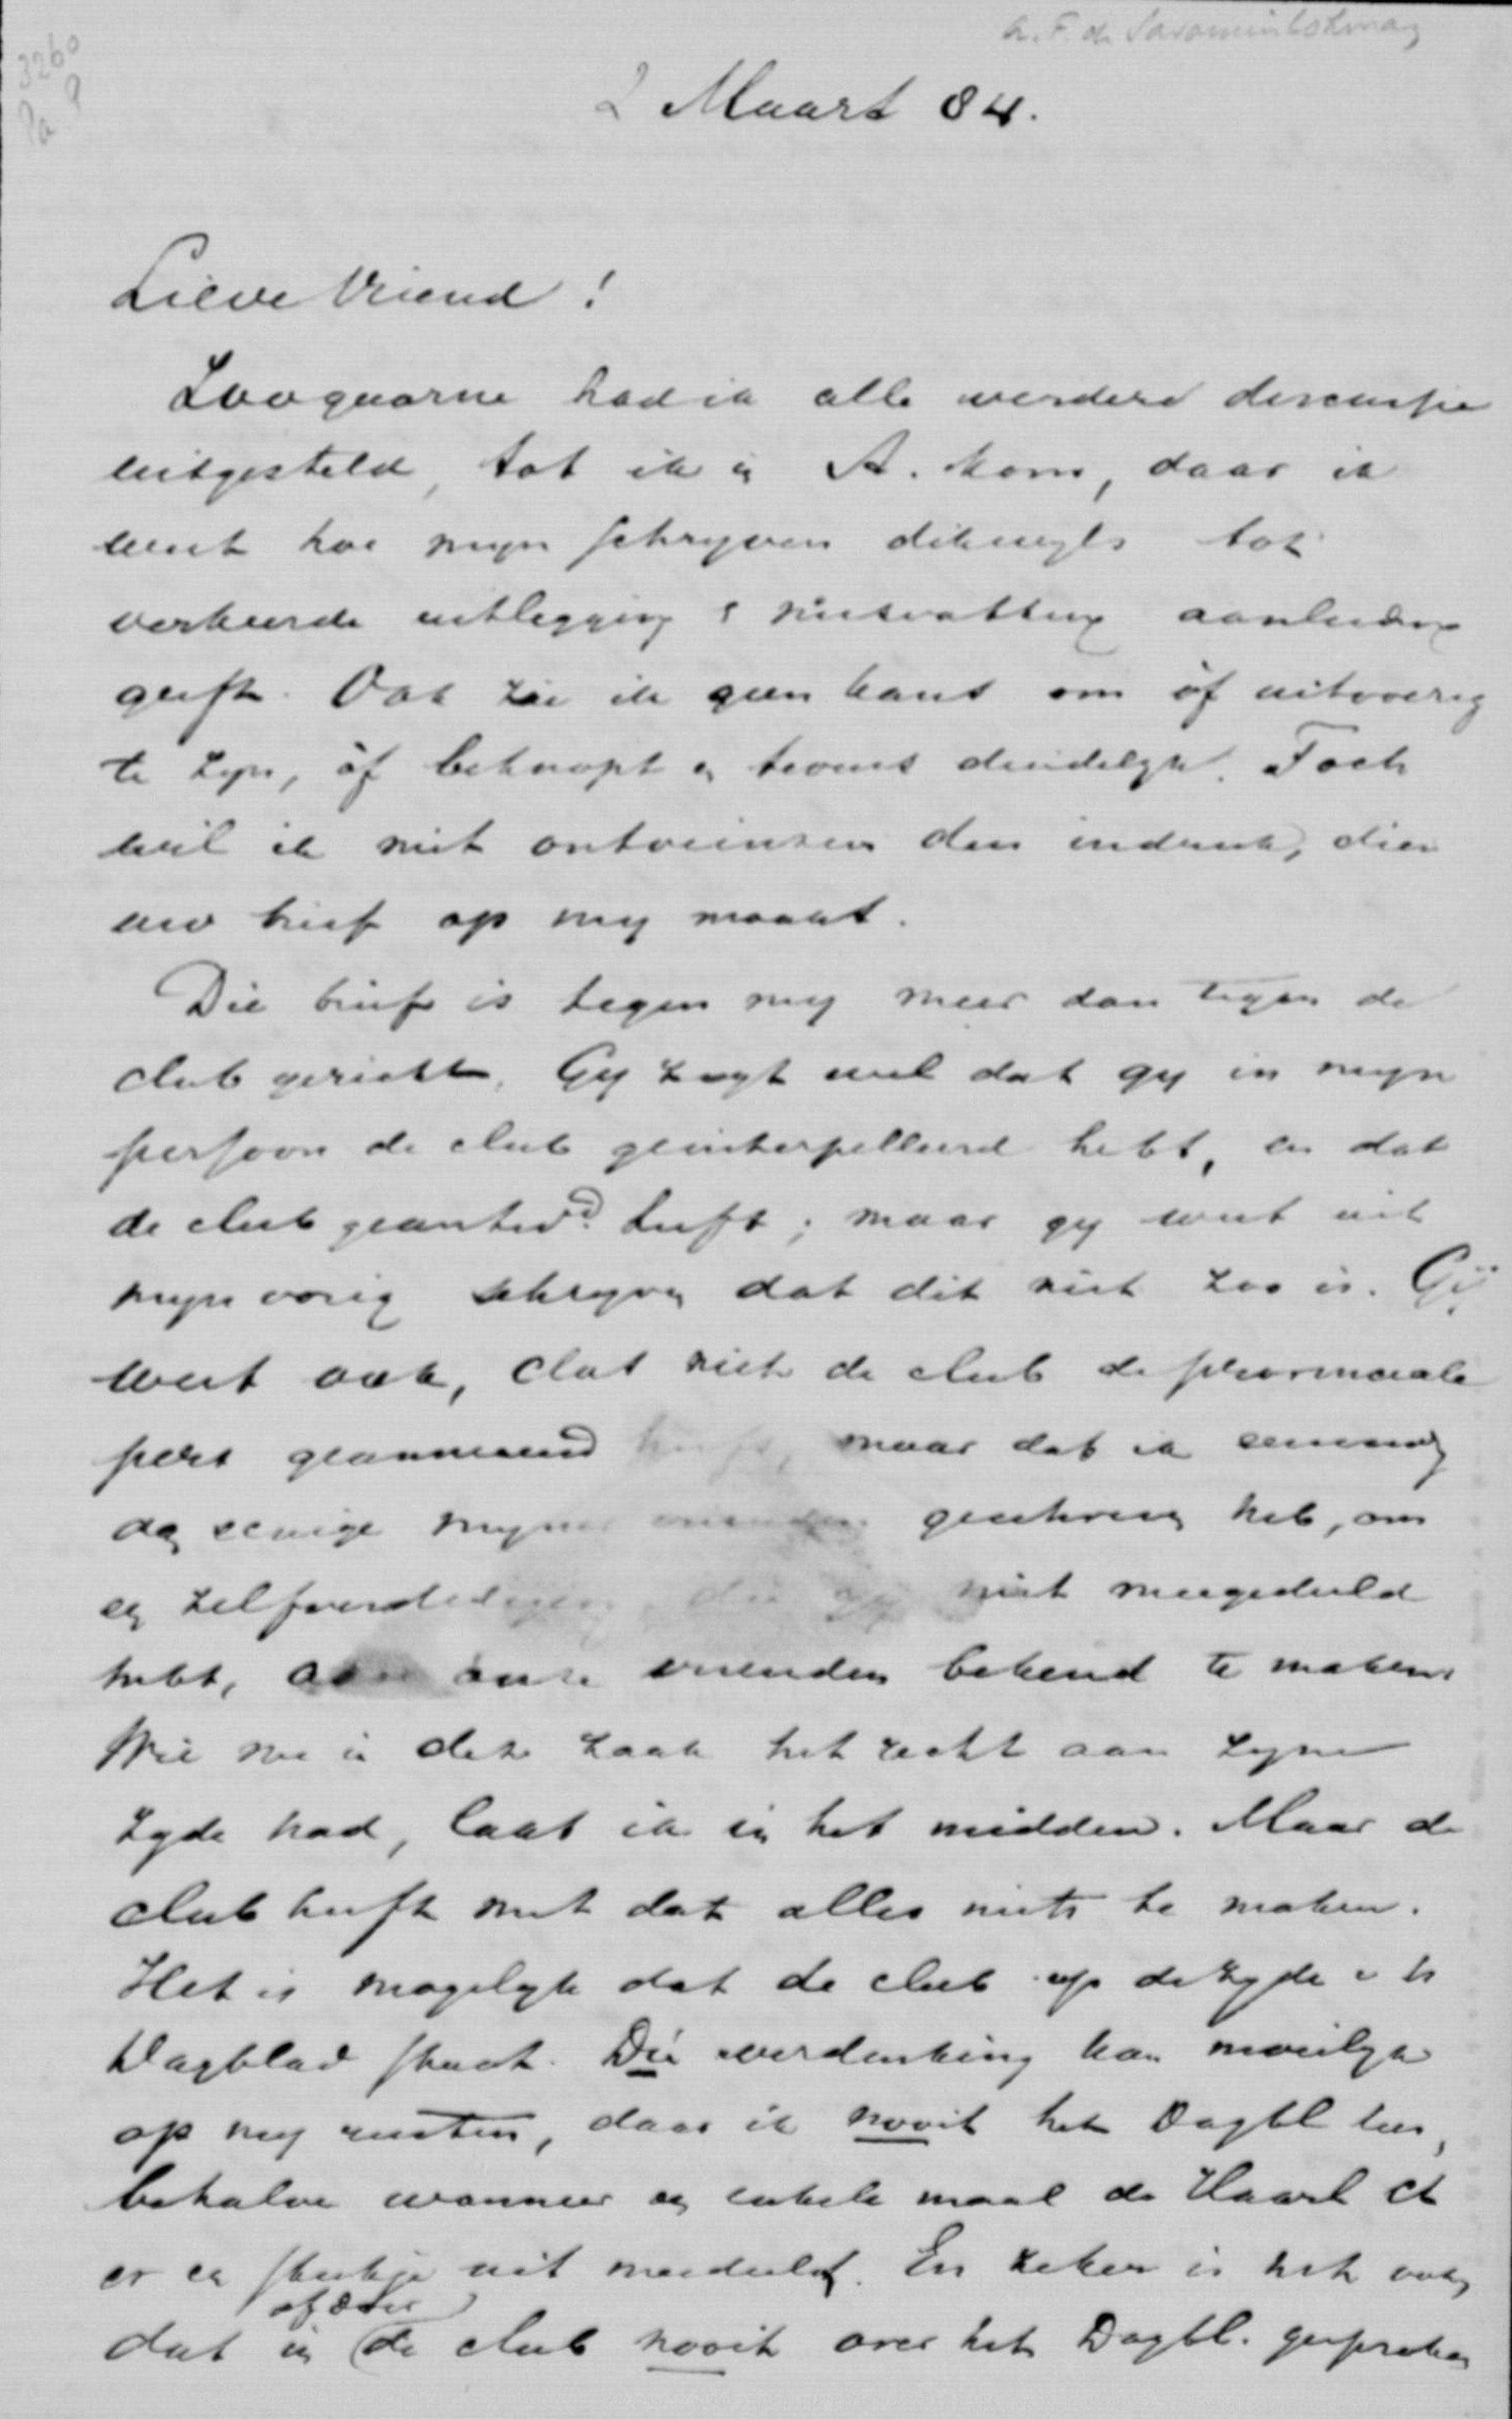 A. F. de Savornin Lohman
3260
Pa 9
2 Maart 84.
Lieve Vriend!
Zoo gaarne had ik alle verdere discussie
uitgesteld, tot ik in A. kom, daar ik
weet hoe myn schryven dikwyls tot
verkeerde uitlegging & misvatting aanleiding
geeft. Ook zie ik geen kans om òf uitvoerig
te zyn, òf beknopt en tevens duidelyk. Toch
wil ik niet ontveinzen den indruk, dien
uw brief op my maakt.
Die brief is tegen my meer dan tegen de
club gericht. Gy zegt wel dat gy in myn
persoon de club geinterpelleerd hebt, en dat
de club geantwd heeft; maar gy weet uit
myn vorig schryven dat dit niet zoo is. Gÿ
weet ook, dat niet de club de provinciale
pers geanimeerd heeft, maar dat ik eenvoudig
aan eenige myner vrienden geschreven heb, om
een zelfverdediging, die gy niet meegedeeld
hebt, aan onze vrienden bekend te maken.
Wie nu in deze zaak het recht aan zyne
zyde had, laat ik in het midden. Maar de
club heeft met dat alles niets te maken.
Het is mogelyk dat de club op de zyde v h
Dagblad staat. Die verdenking kan moeilyk
op my rusten, daar ik nooit het Dagbl lees,
behalve wanneer een enkele maal de Haarl Ct
er een stukje uit meedeelt. En zeker is het ook,
of door
dat in de club nooit over het Dagbl. gesproken